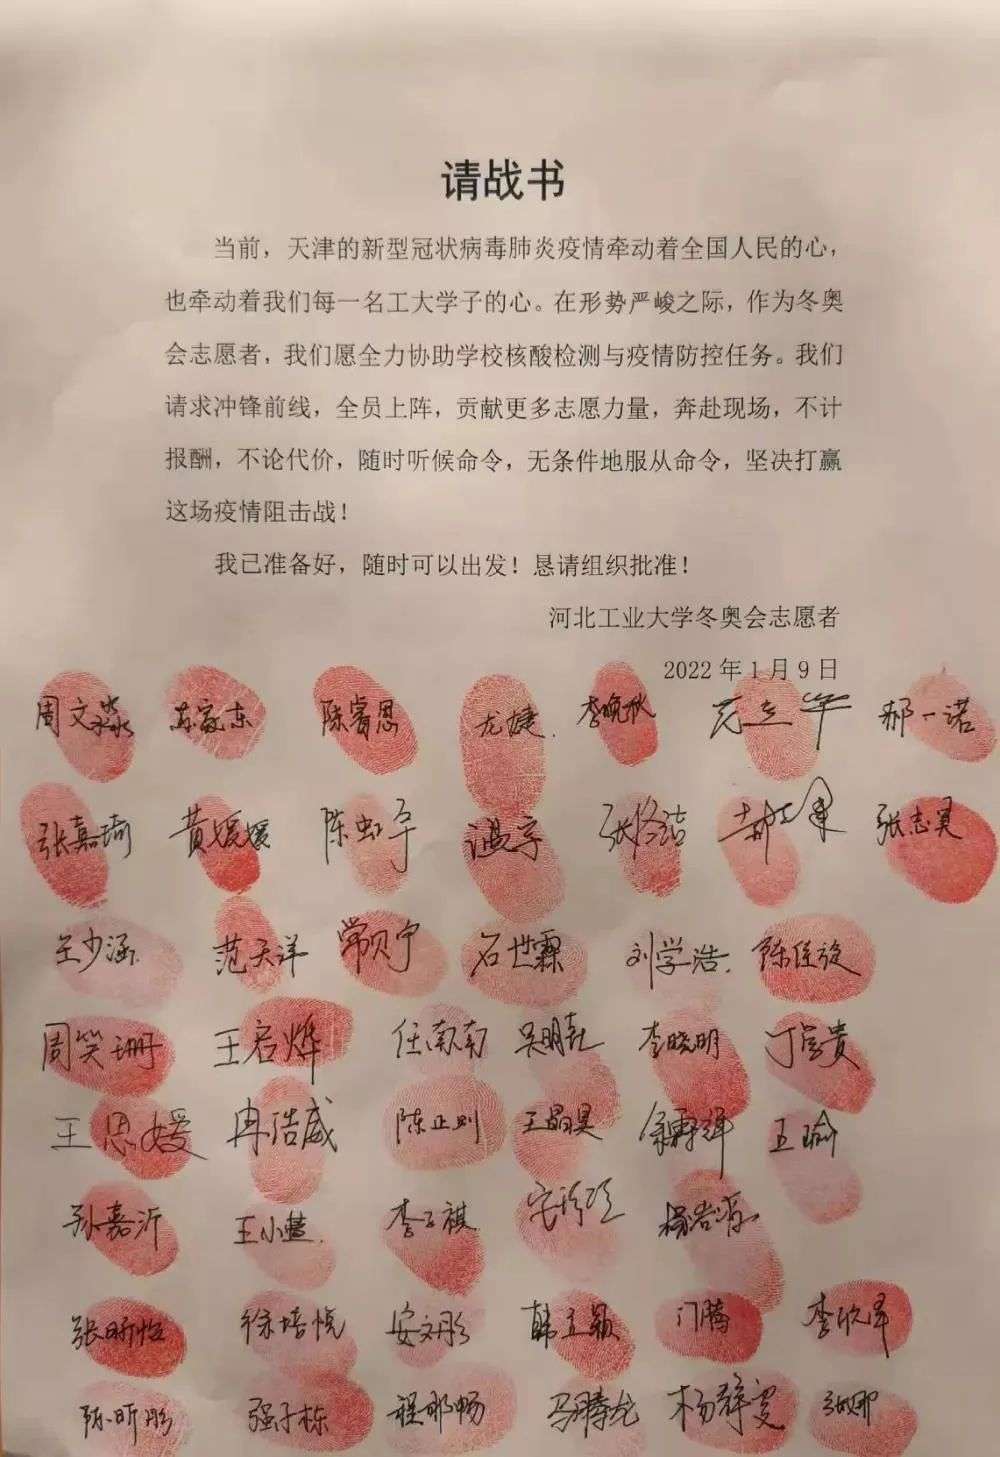 请战书
当前，天津的新型冠状病毒肺炎疫情牵动着全国人民的心，
也牵动着我们每一名工大学子的心。在形势严峻之际，作为冬奥
会志愿者，我们愿全力协助学校核酸检测与疫情防控任务。我们
请求冲锋前线，全员上阵，贡献更多志愿力量，奔赴现场，不计
报酬，不论代价，随时听候命令，无条件地服从命令，坚决打赢
这场疫情阻击战！
我已准备好，随时可以出发！恳请组织批准！
河北工业大学冬奥会志愿者
2022 年 1 月 9 日
周文淼 苏家东 陈睿恩 尤婕 李晚秋 郝一诺
张嘉琦 黄媛媛 陈虹宇 温宇 张志昊
王少涵 范天洋 常贝宁 石世霖 刘学浩 陈佳旋
周笑珊 王启烨 任南南 李晓明 丁宝贵
王思媛 冉浩威 陈正则 王晶昊 王瑜
孙嘉沂 王小慧 李子祺
张昕怡 徐培悦 安文彤 韩立颖 门腾 李欣泽
陈昕彤 强子栋 程郡畅 马腾龙 杨静雯 张娜